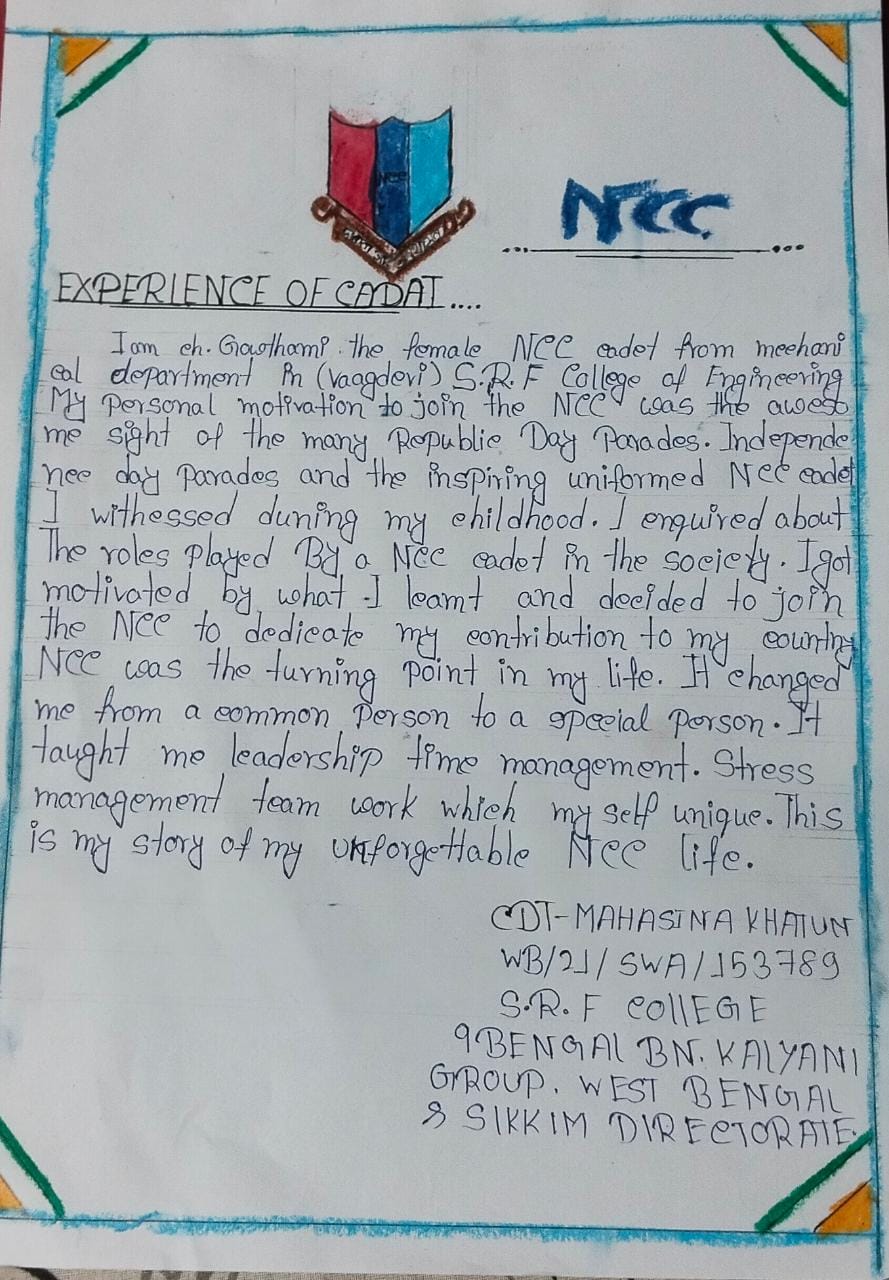 NCC
NCC
EXPERIENCE OF CADAT....
I am ch. Gowthami. the female NCC cadet from mechani
cal department in (vaagdevi) S.R.F College of Engineering
My Personal motivation to join the NCC was the aweso
me sight of the many Republic Day Parades. Independe
nce day Parades and the inspiring uniformed NCC cadet
I withessed duning my childhood. I enquired about
The roles Played By a NCC cadet in the society. I got
motivated by what I leamt and decided to join
the NCC to dedicate my contribution to my country
NCC was the turning Point in my life. It changed
me from a common Person to a special person. It
taught me leadership time management. Stress
management team work which my self unique. This
is my story of my unforgettable NCC life.
CDT-MAHASINA KHATUN
WB/21/SWA/153789
S.R.F COllEGE
9 BENGAL BN. KALYANI
GROUP. WEST BENGAL
& SIKKIM DIRECTORATE.